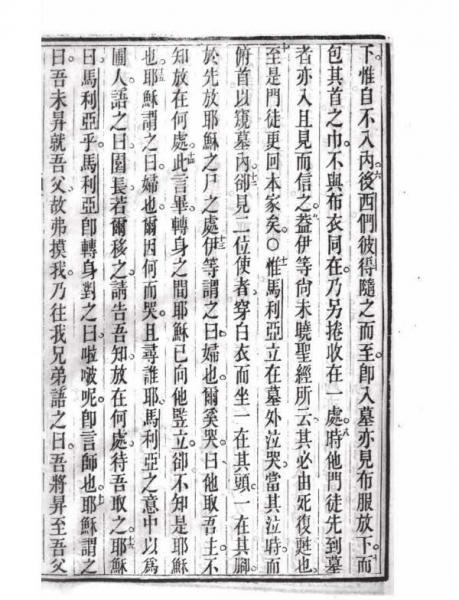 下。惟自不入內。後西們彼得隨之而至。卽入墓亦見布服放下。而
包其首之巾。不與布衣同在。乃另捲收在一處。時他門徒先到墓
者亦入且見而信之。葢伊等尙未曉聖經所云。其必由死復甦也。
至是門徒更回本家矣。○惟馬利亞立在墓外泣哭。當其泣時而
俯首以窺墓內。卻見二位使者。穿白衣而坐。一在其頭。一在其腳。
於先放耶穌之尸之處。伊等謂之曰。婦也。爾奚哭。曰他取吾主。不
知放在何處。此言畢轉身之間。耶穌已向他豎立。卻不知是耶穌
也。耶穌謂之曰。婦也。爾因何而哭。且尋誰耶。馬利亞之意中以爲
圃人。語之曰。園長。若爾移之。請告吾知放在何處。待吾取之。耶穌
曰馬利亞乎。馬利亞卽轉身對之曰。啦啵呢。卽言師也。耶穌謂之
曰吾未昇就吾父。故弗摸我。乃往我兄弟語之曰。吾將昇至吾父